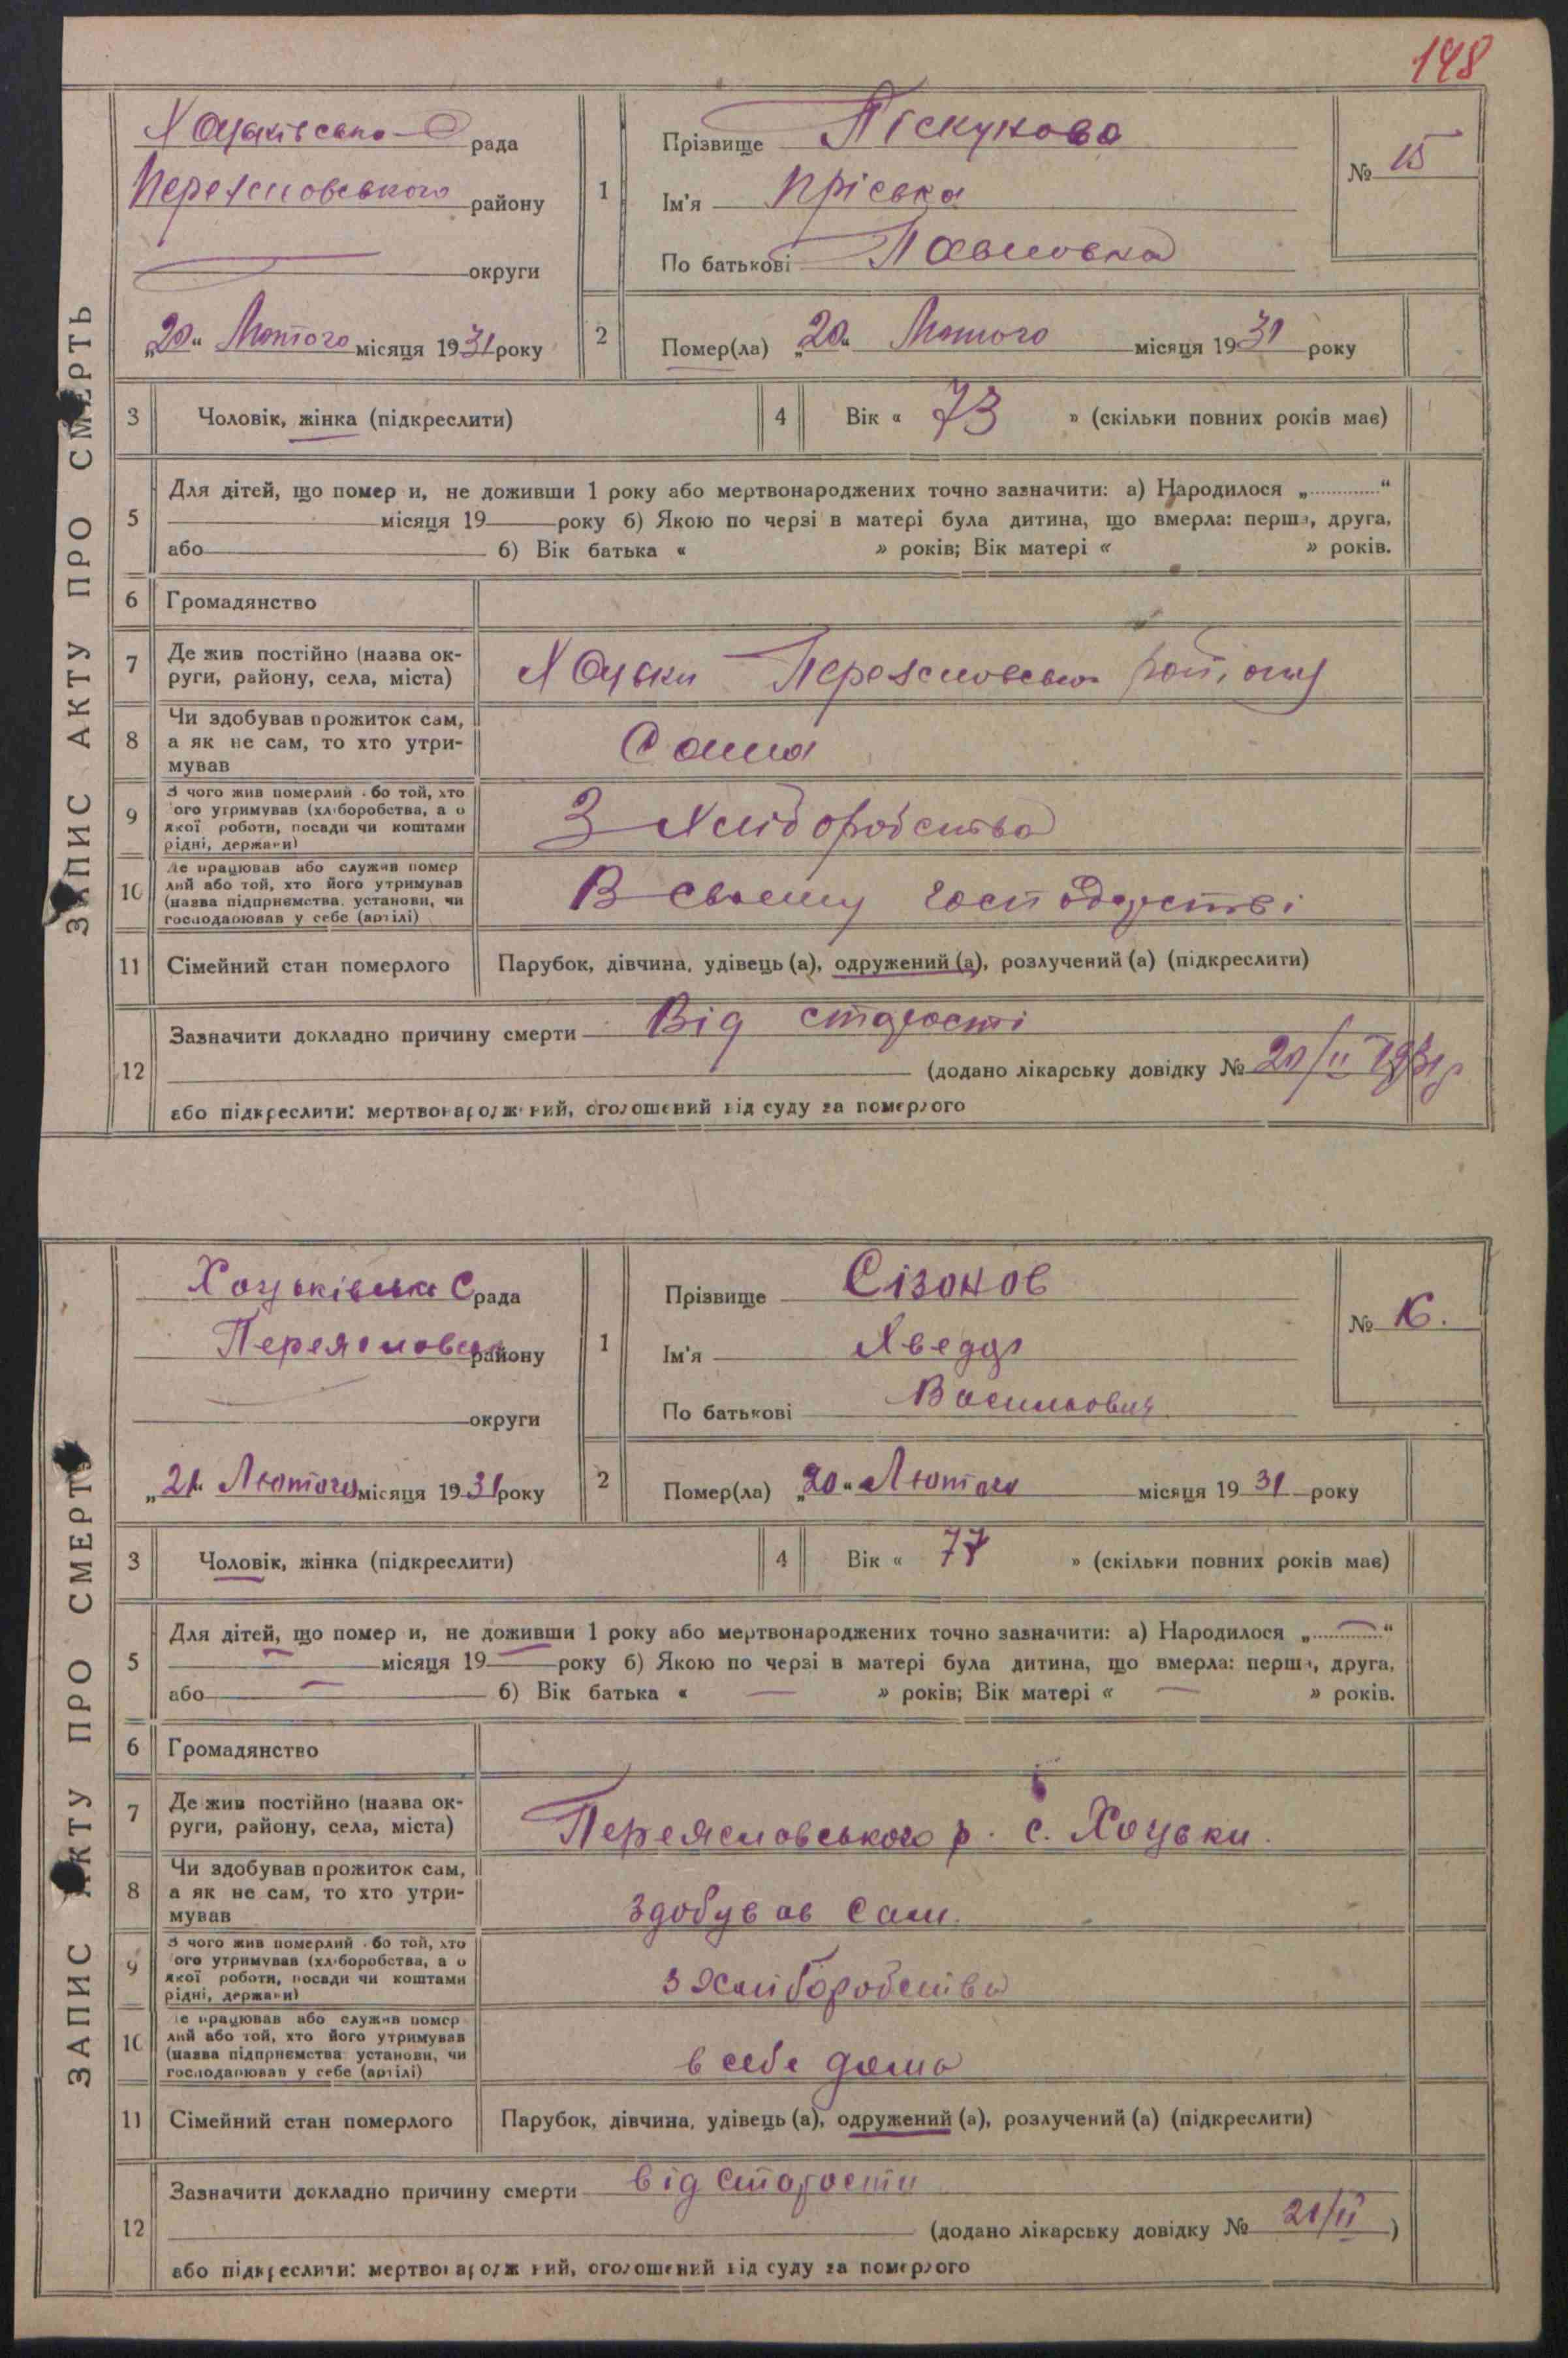 148
ЗАПИС АКТУ ПРО СМЕРТЬ
Хоцьківська С рада
Переяславського району
округи
„20“ Лютого місяця 1931 року
1
Прізвище Піскунова
Ім'я Пріська
По батькові Павловна
№ 15
2
Помер(ла) „20“ Лютого місяця 1931 року
3 Чоловік, жінка (підкреслити)
4 Вік « 73 » (скільки повних років має)
5
Для дітей, що помер и, не доживши 1 року або мертвонароджених точно зазначити: а) Народилося „ “
місяця 19 року б) Якою по черзі в матері була дитина, що вмерла: перша, друга,
або б) Вік батька « » років; Вік матері « » років.
6 Громадянство
7 Де жив постійно (назва ок-
руги, району, села, міста)
Хоцьки Переяславсько району
8 Чи здобував прожиток сам,
а як не сам, то хто утри-
мував
Сама
9 З чого жив померлий або той, хто
ого утримував (хліборобства, а о
якої роботи, посади чи коштами
рідні, держави)
З Хліборобства
10 Де працював або служив помер
лий або той, хто його утримував
(назва підприємства, установи, чи
господарював у себе (артілі)
В своєму господарстві
11 Сімейний стан померлого
Парубок, дівчина, удівець (а), одружений (а), розлучений (а) (підкреслити)
12
Зазначити докладно причину смерти Від старості
(додано лікарську довідку № 20/II 1931р
або підкреслити: мертвонароджений, оголошений від суду за померлого
ЗАПИС АКТУ ПРО СМЕРТЬ
Хоцьківська С рада
Переяславськ району
округи
„21“ Лютого місяця 1931 року
1
Прізвище Сізонов
Ім'я Хведор
По батькові Васильович
№ 16.
2
Помер(ла) „20“ Лютого місяця 1931 року
3 Чоловік, жінка (підкреслити)
4 Вік « 77 » (скільки повних років має)
5
Для дітей, що помер и, не доживши 1 року або мертвонароджених точно зазначити: а) Народилося „ “
місяця 19 року б) Якою по черзі в матері була дитина, що вмерла: перша, друга,
або б) Вік батька « — » років; Вік матері « — » років.
6 Громадянство
7 Де жив постійно (назва ок-
руги, району, села, міста)
Переяславського р. с. Хоцьки.
8 Чи здобував прожиток сам,
а як не сам, то хто утри-
мував
Здобував Сам.
9 З чого жив померлий або той, хто
ого утримував (хліборобства, а о
якої роботи, посади чи коштами
рідні, держави)
з Хліборобства
10 Де працював або служив помер
лий або той, хто його утримував
(назва підприємства установи, чи
господарював у себе (артілі)
в себе дома
11 Сімейний стан померлого
Парубок, дівчина, удівець (а), одружений (а), розлучений (а) (підкреслити)
12
Зазначити докладно причину смерти від старости
(додано лікарську довідку № 21/II )
або підкреслити: мертвонароджений, оголошений від суду за померлого